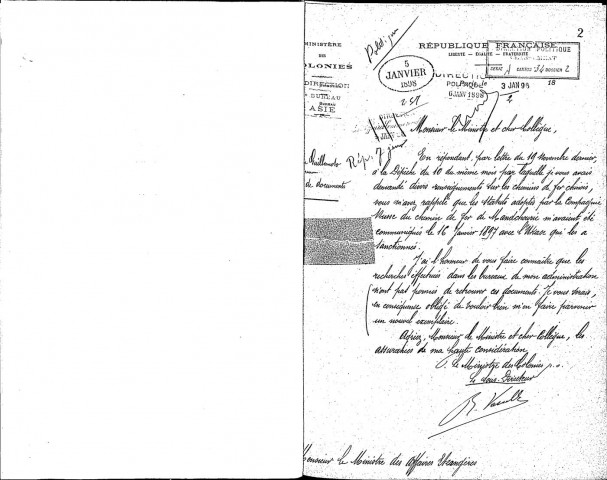 2
MINISTÈRE
DES
COLONIES
RÉPUBLIQUE FRANÇAISE
LIBERTÉ — ÉGALITÉ — FRATERNITÉ
DIRECTION POLITIQUE
CARTON 34 DOSSIER 2
5
JANVIER
1898
DIRECTION
POLITIQUE
6 JANV 1898
3 JAN 98
18
2
DIRECTION
BUREAU
ASIE
Rép. 7 janv
de documents
Monsieur le Ministre et cher Collègue,
En répondant, par lettre du 19 Novembre dernier,
à la Dépêche du 10 du même mois par laquelle je vous avais
demandé divers renseignements sur les chemins de fer chinois,
vous m'avez rappelé que les Statuts adoptés par la Compagnie
Russe du chemin de fer de Mandchourie m'avaient été
communiqués le 16 Janvier 1897 avec l'Ukase qui les a
sanctionnés.
J'ai l'honneur de vous faire connaître que les
recherches effectuées dans les bureaux de mon administration
n'ont pas permis de retrouver ces documents. Je vous serais,
en conséquence obligé de vouloir bien m'en faire parvenir
un nouvel exemplaire.
Agréez, Monsieur le Ministre et cher Collègue, les
assurances de ma haute considération.
P. le Ministre des Colonies p.o.
Le Sous-Directeur
Monsieur le Ministre des Affaires Etrangères